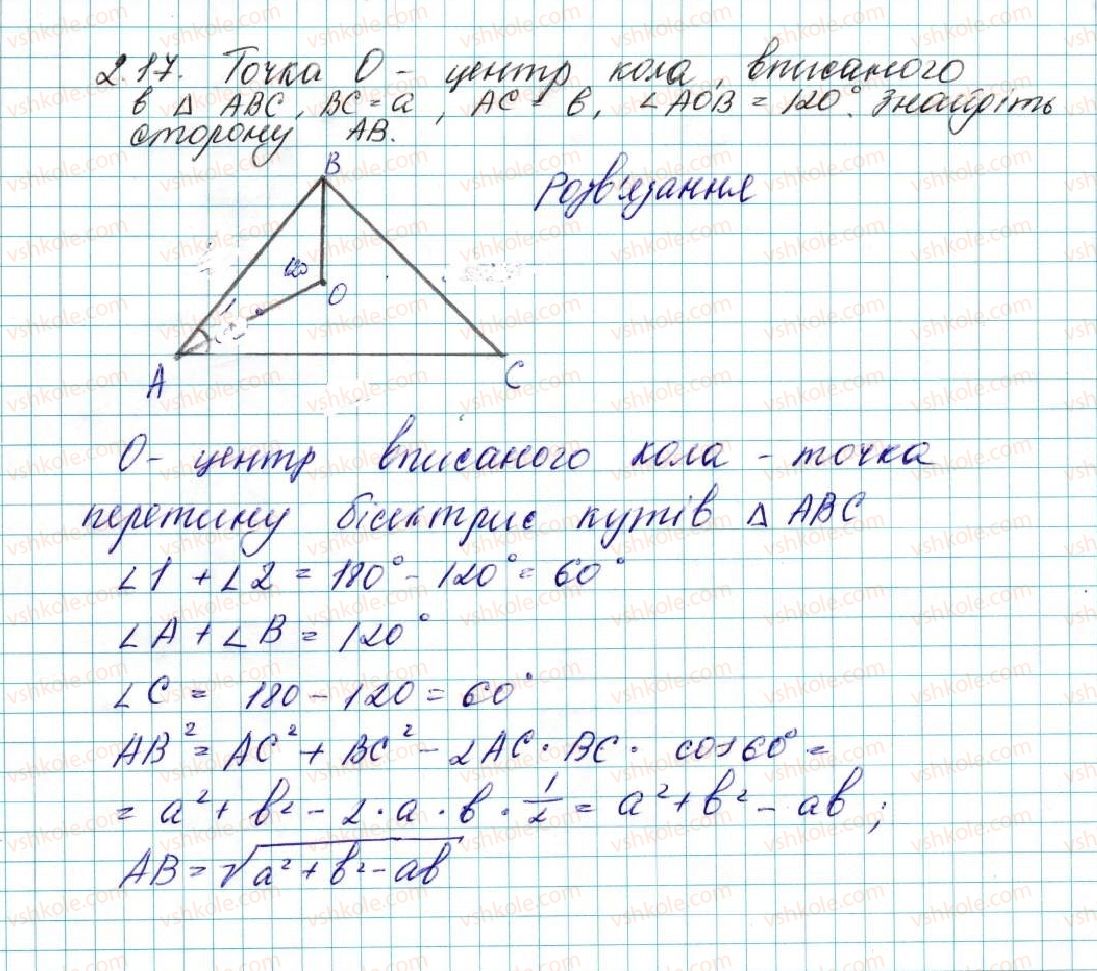 2.17. Точка О - центр кола, вписаного
в △ ABC, BC = a, AC = b, ∠AOB = 120°. Знайдіть
сторону AB.
Розв'язання
B
120
O
1
A
C
О - центр вписаного кола - точка
перетину бісектрис кутів △ ABC
∠1 + ∠2 = 180° - 120° = 60°
∠A + ∠B = 120°
∠C = 180 - 120 = 60°
AB² = AC² + BC² - 2AC · BC · cos 60° =
= a² + b² - 2 · a · b · 1/2 = a² + b² - ab ;
AB = √a² + b² - ab
vshkole.com